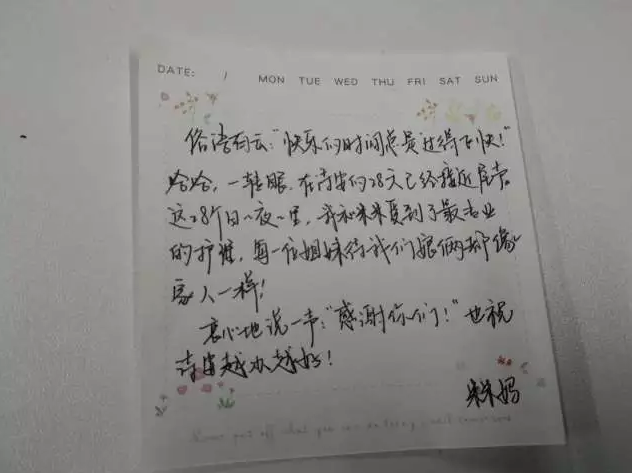 DATE: / MON TUE WED THU FRI SAT SUN
俗语有云:"快乐的时间总是过得飞快!"
哈哈,一转眼,在诗安的28天已经接近尾声
这28个日日夜夜里,我和米米受到了最专业
的护理,每一位姐妹待我们娘俩都像
家人一样!
衷心地说一声:"感谢你们!"也祝
诗安越办越好!
米米妈
Never put off what you can do today until tomorrow